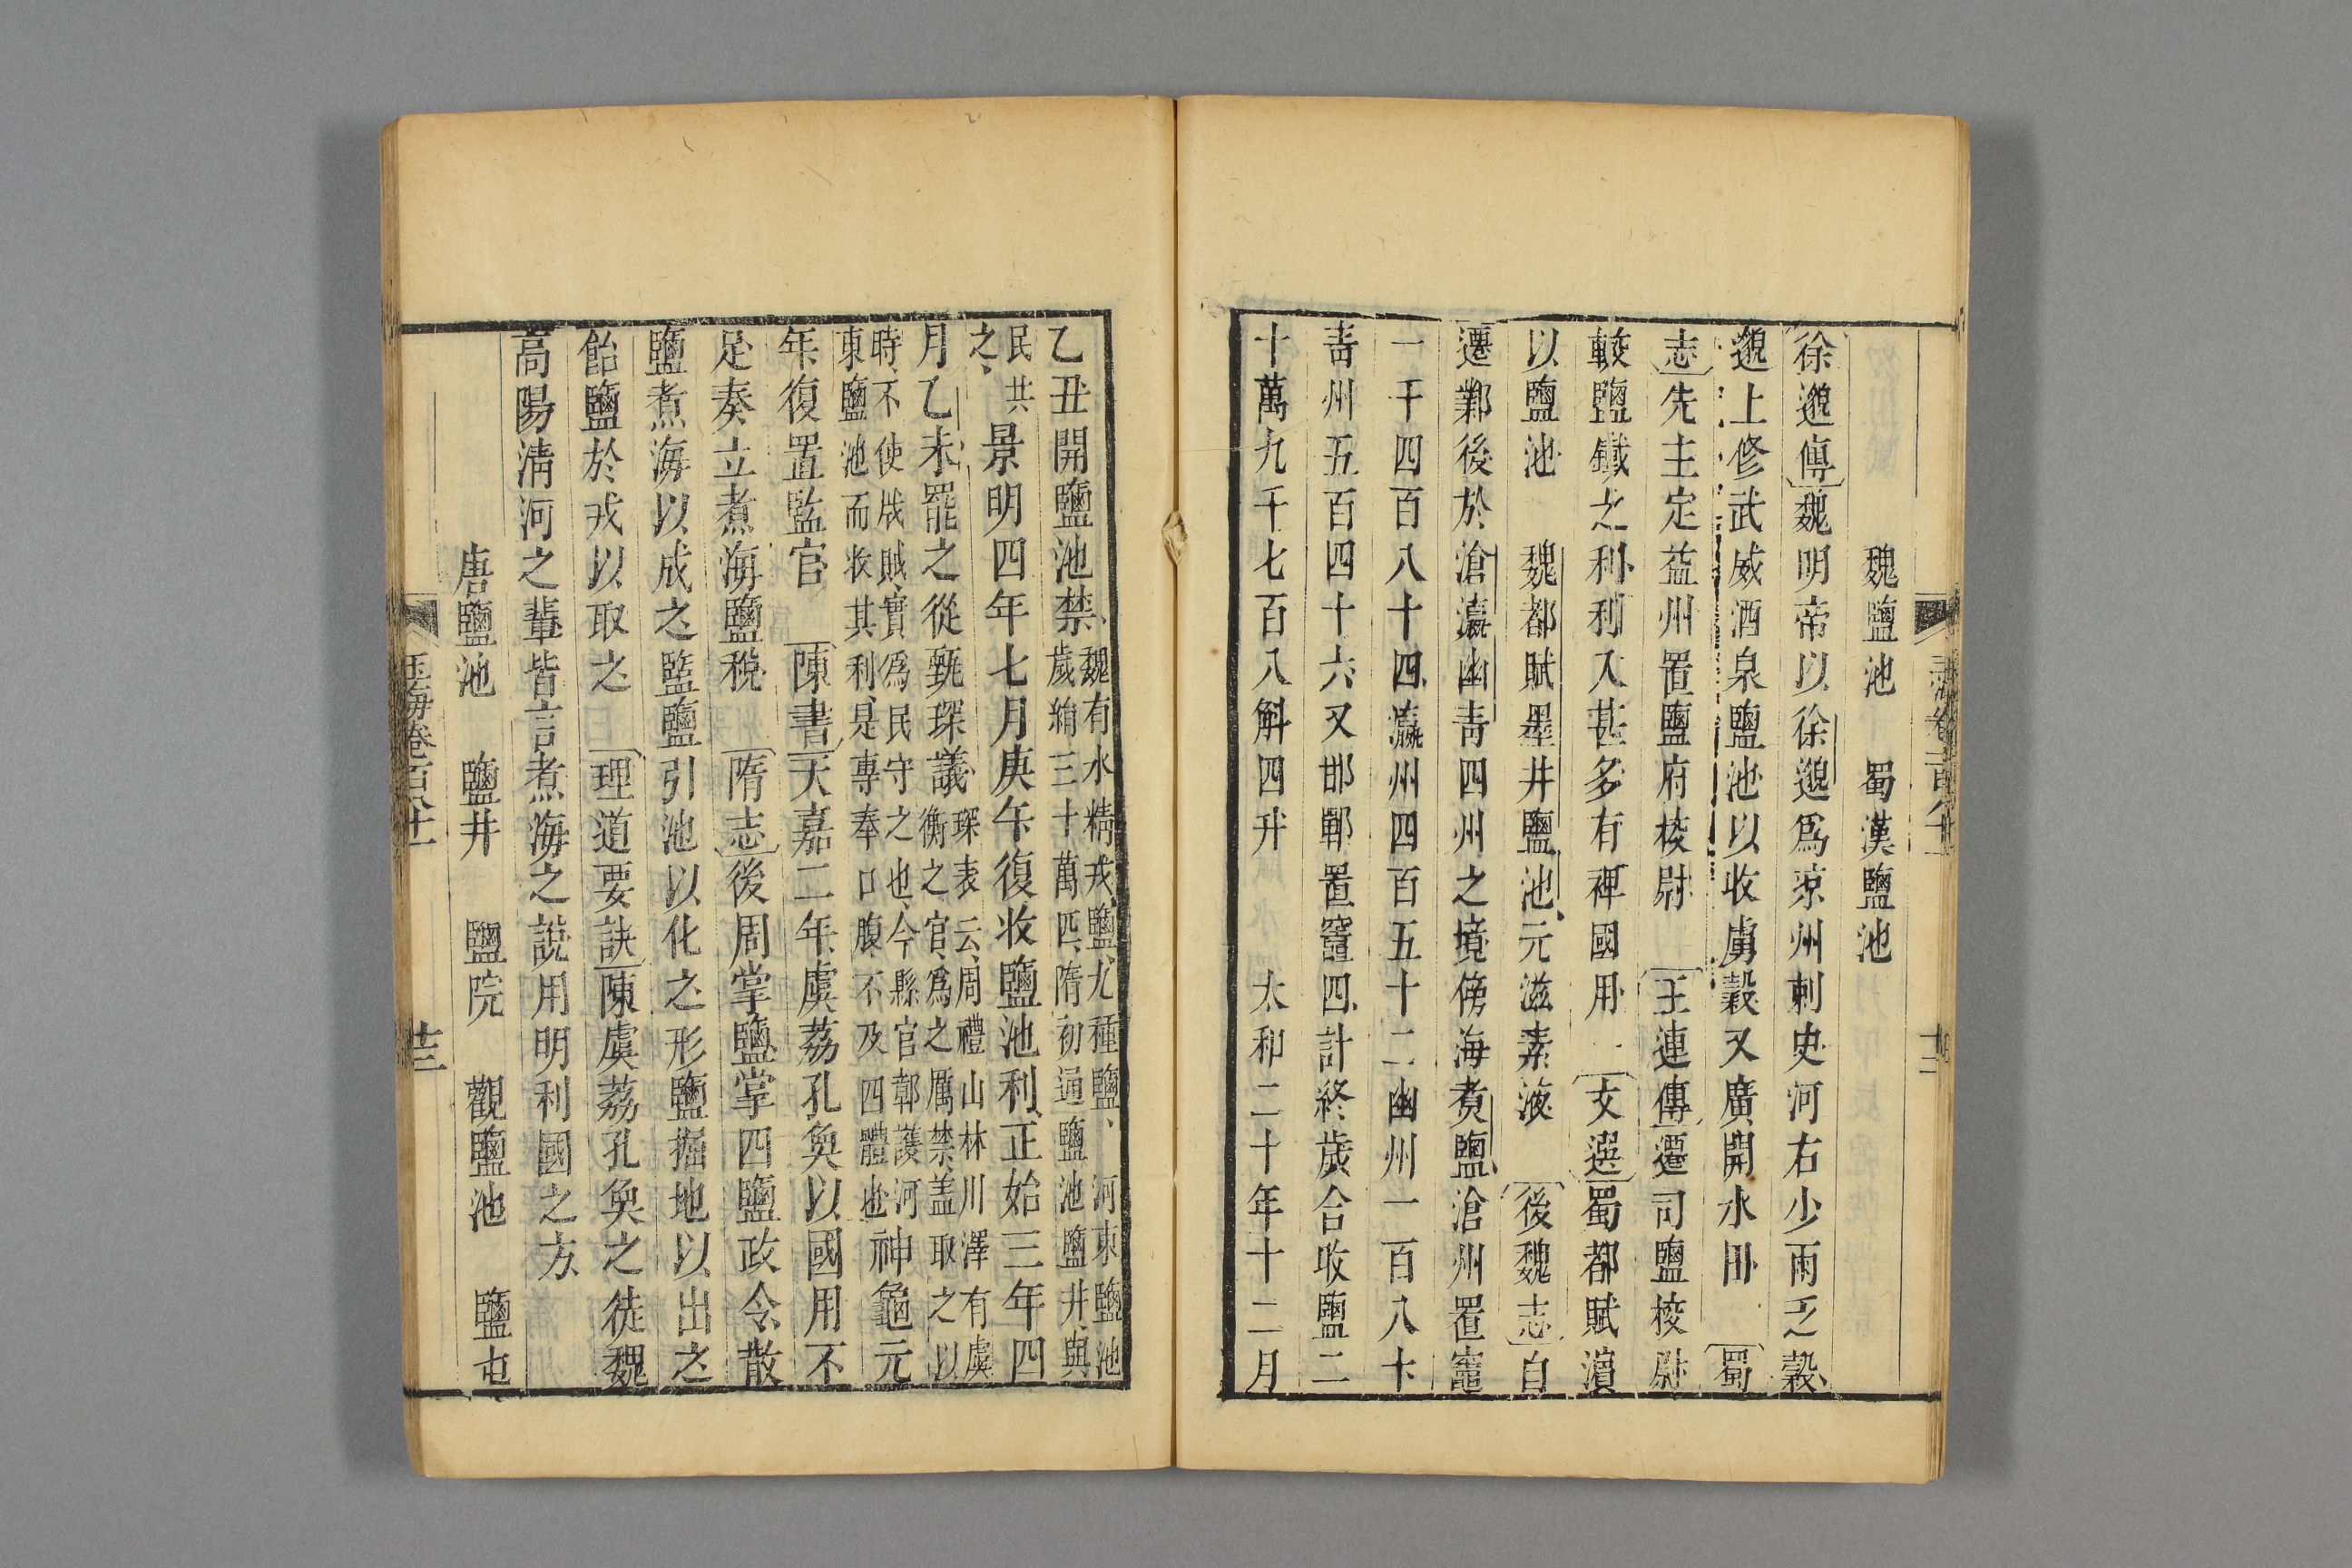 魏鹽池　蜀漢鹽池
徐邈傳魏明帝以徐邈爲涼州刺史河右少雨乏穀
邈上修武威酒泉鹽池以收虜穀又廣開水田　蜀
志先主定益州置鹽府校尉　王連傳遷司鹽校尉
較鹽鐵之利利入甚多有裨國用　文選蜀都賦濱
以鹽池　魏都賦墨井鹽池元滋素液　後魏志自
遷鄴後於滄瀛幽青四州之境傍海煑鹽滄州置竈
一千四百八十四瀛州四百五十二幽州一百八十
青州五百四十六又邯鄲置竈四計終歲合收鹽二
十萬九千七百八斛四升　太和二十年十二月
乙丑開鹽池禁魏有水精戎鹽尤種鹽河東鹽池
歲緔三十萬匹隋初通鹽池鹽井與
民共
之景明四年七月庚午復收鹽池利正始三年四
月乙未罷之從甄琛議琛表云周禮山林川澤有虞
衡之官爲之厲禁盖取之以
時不使戕賊實爲民守之也今縣官鄣護河
東鹽池而收其利是專奉口腹不及四體也神龜元
年復置監官　陳書天嘉二年虞荔孔奐以國用不
足奏立煮海鹽稅　隋志後周掌鹽掌四鹽政令散
鹽煮海以成之監鹽引池以化之形鹽掘地以出之
飴鹽於戎以取之　理道要訣陳虞荔孔奐之徒魏
高陽清河之輩皆言煮海之說用明利國之方
唐鹽池　鹽井　鹽院　觀鹽池　鹽屯
玉海卷百八十一
廿三